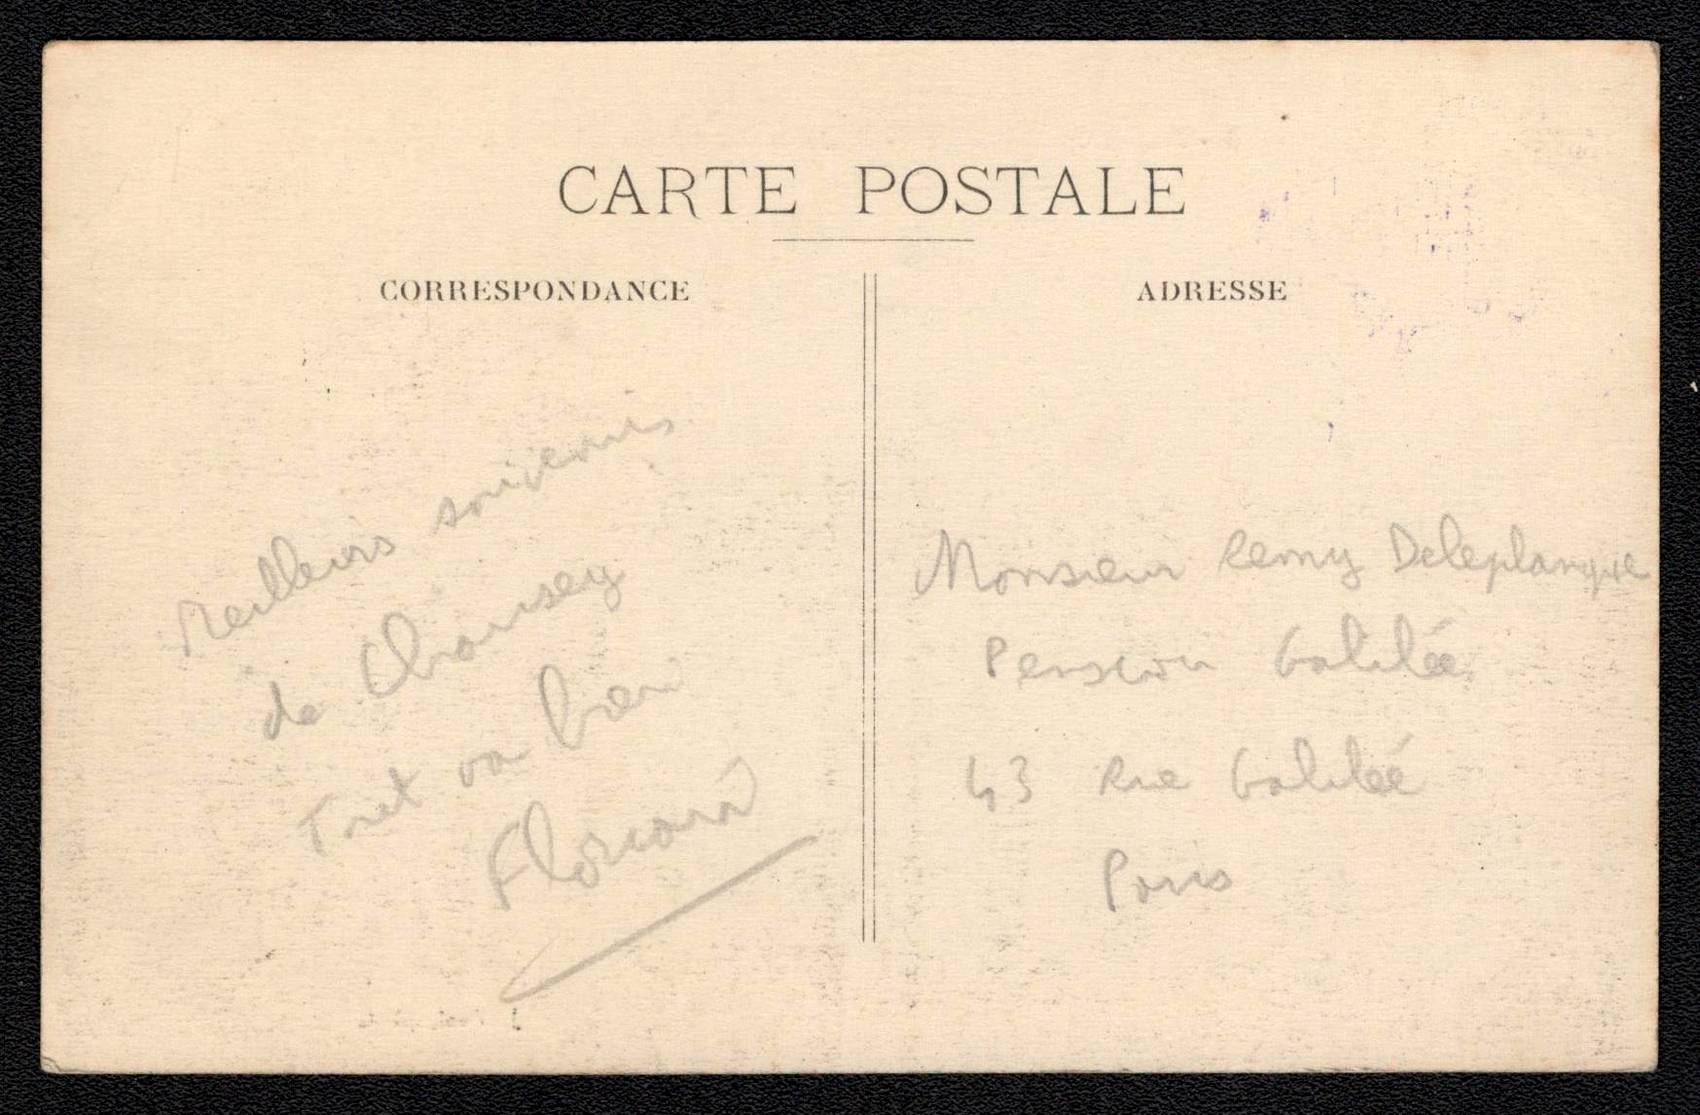 CARTE POSTALE
CORRESPONDANCE
ADRESSE
Meilleurs souvenirs
de Chausey
Tout va bien
Monsieur Remy Deleplanque
Pension Galilée
43 Rue Galilée
Paris